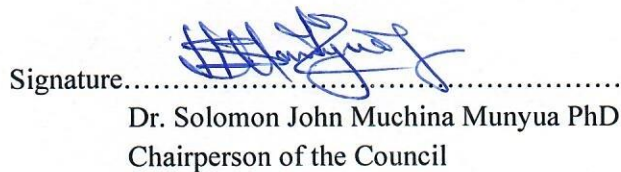 Signature..................................................................
Dr. Solomon John Muchina Munyua PhD
Chairperson of the Council